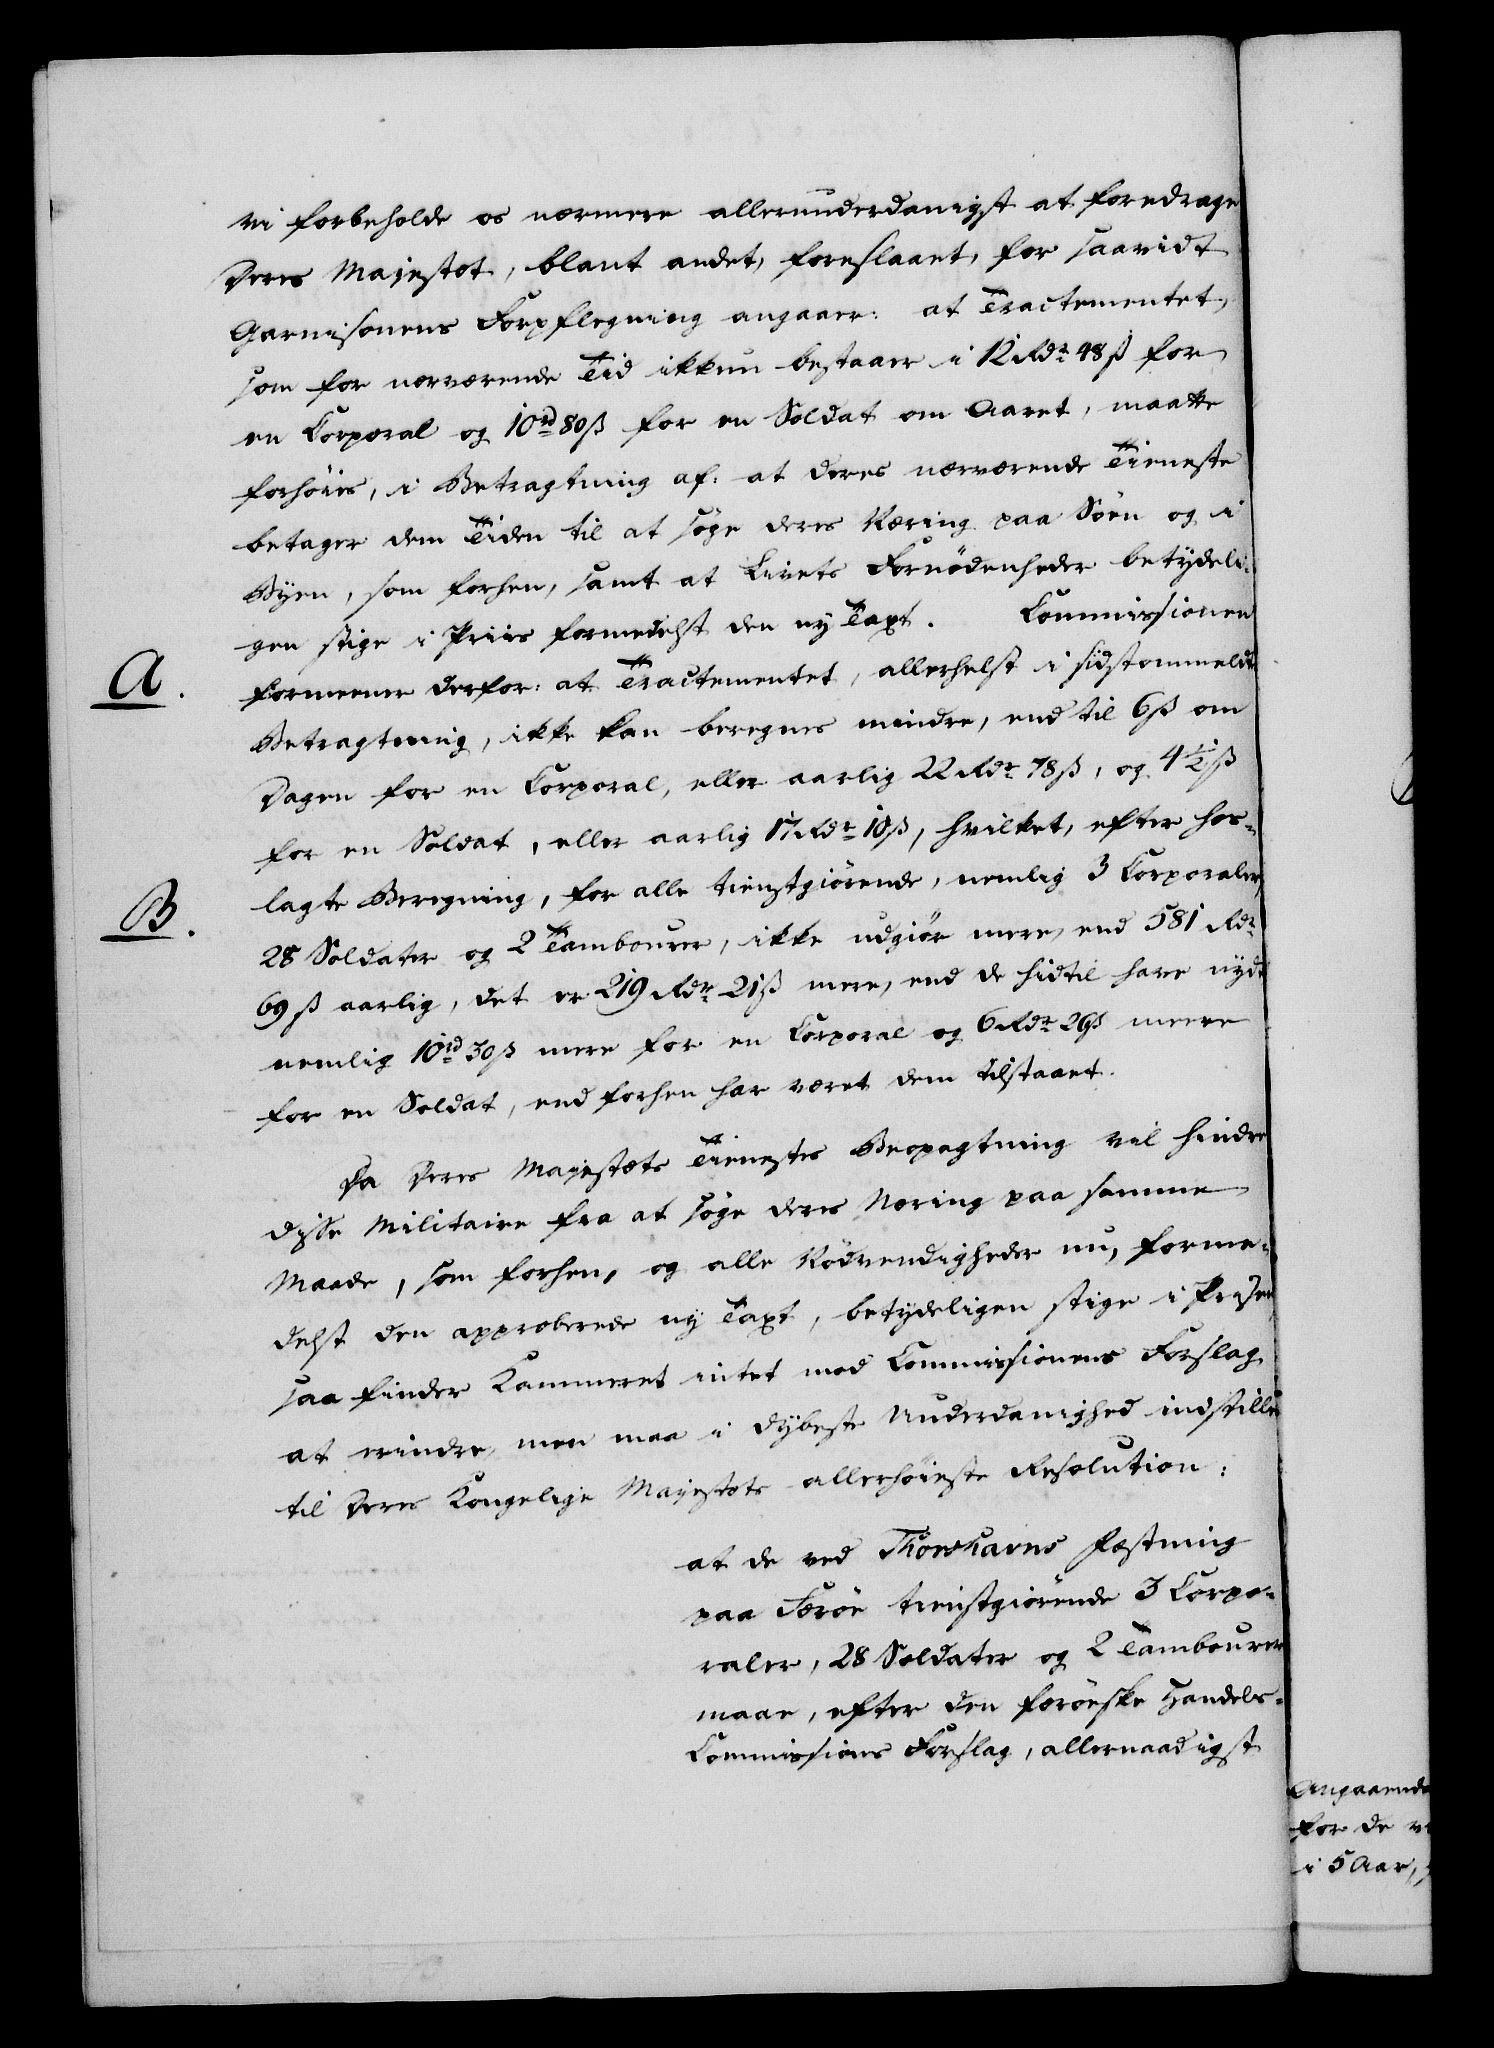 vi forbeholde os nærmere allerunderdanigst at foredrage
Deres Majestæt, blant andet, foreslaaet, for saavidt
Garnisonens Forpflegning angaaer: at Tractementet,
som for nærværende Tid ikkun bestaaer i 12 Rdr 48 ß for
en Corporal og 10 rd 80 ß for en Soldat om Aaret, maatte
forhöies, i Betragtning af: at deres nærværende Tieneste
betager dem Tiden til at söge deres Næring paa Söen og i
Byen, som forhen, samt at Livets Fornödenheder betydeli-
gen stige i Priis formedelst den ny Taxt. Commissionen
A. formeener derfor: at Tractementet, allerhelst i sidstommeldte
Betragtning, ikke kan beregnes mindre, end til 6 ß om
Dagen for en Corporal, eller aarlig 22 Rdr 78 ß, og 4 1/2 ß
for en Soldat, eller aarlig 17 Rdr 10 ß, hvilket, efter hos-
B. lagte Beregning, for alle tienstgiörende, nemlig 3 Corporaler,
28 Soldater og 2 Tambourer, ikke udgiör mere, end 581 Rdr
69 ß aarlig, det er 219 Rdr 21 ß mere, end de hidtil have nydt
nemlig 10 rd 30 ß mere for en Corporal og 6 Rdr 26 ß meere
for en Soldat, end forhen har været dem tilstaaet.
Da Deres Majestæts Tienestes Beopagtning vil hindre
disse Militaire fra at söge deres Næring paa samme
Maade, som forhen, og alle Nödvendigheder nu, forme-
delst den approberede ny Taxt, betydeligen stige i Prisen
saa finder Kammeret intet mod Commissionens Forslag
at erindre, men maa i dybeste Underdanighed indstille
til Deres Kongelige Majestæts allerhöieste Resolution:
at de ved Thorshavns Fæstning
paa Færöe tienstgiörende 3 Corpo-
raler, 28 Soldater og 2 Tambourer
maae, efter den færöeske Handels-
Commissions Forslag, allernaadigst
Angaaende
for de
i 5 Aar,